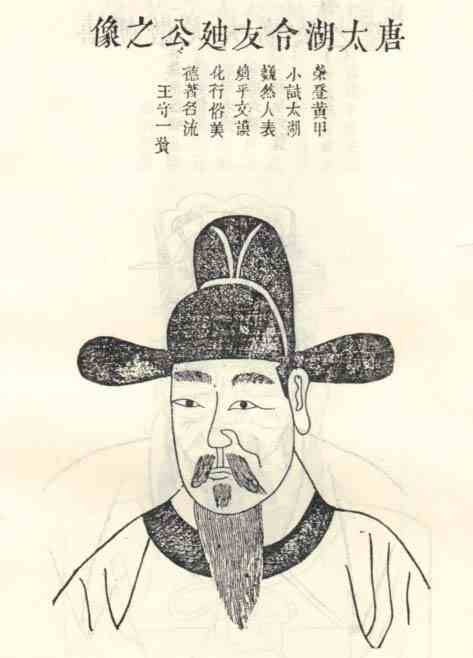 唐太湖令友廸公之像
榮登黃甲
小試太湖
巍然人表
煥乎文謨
化行俗美
德著名流
王守一贊